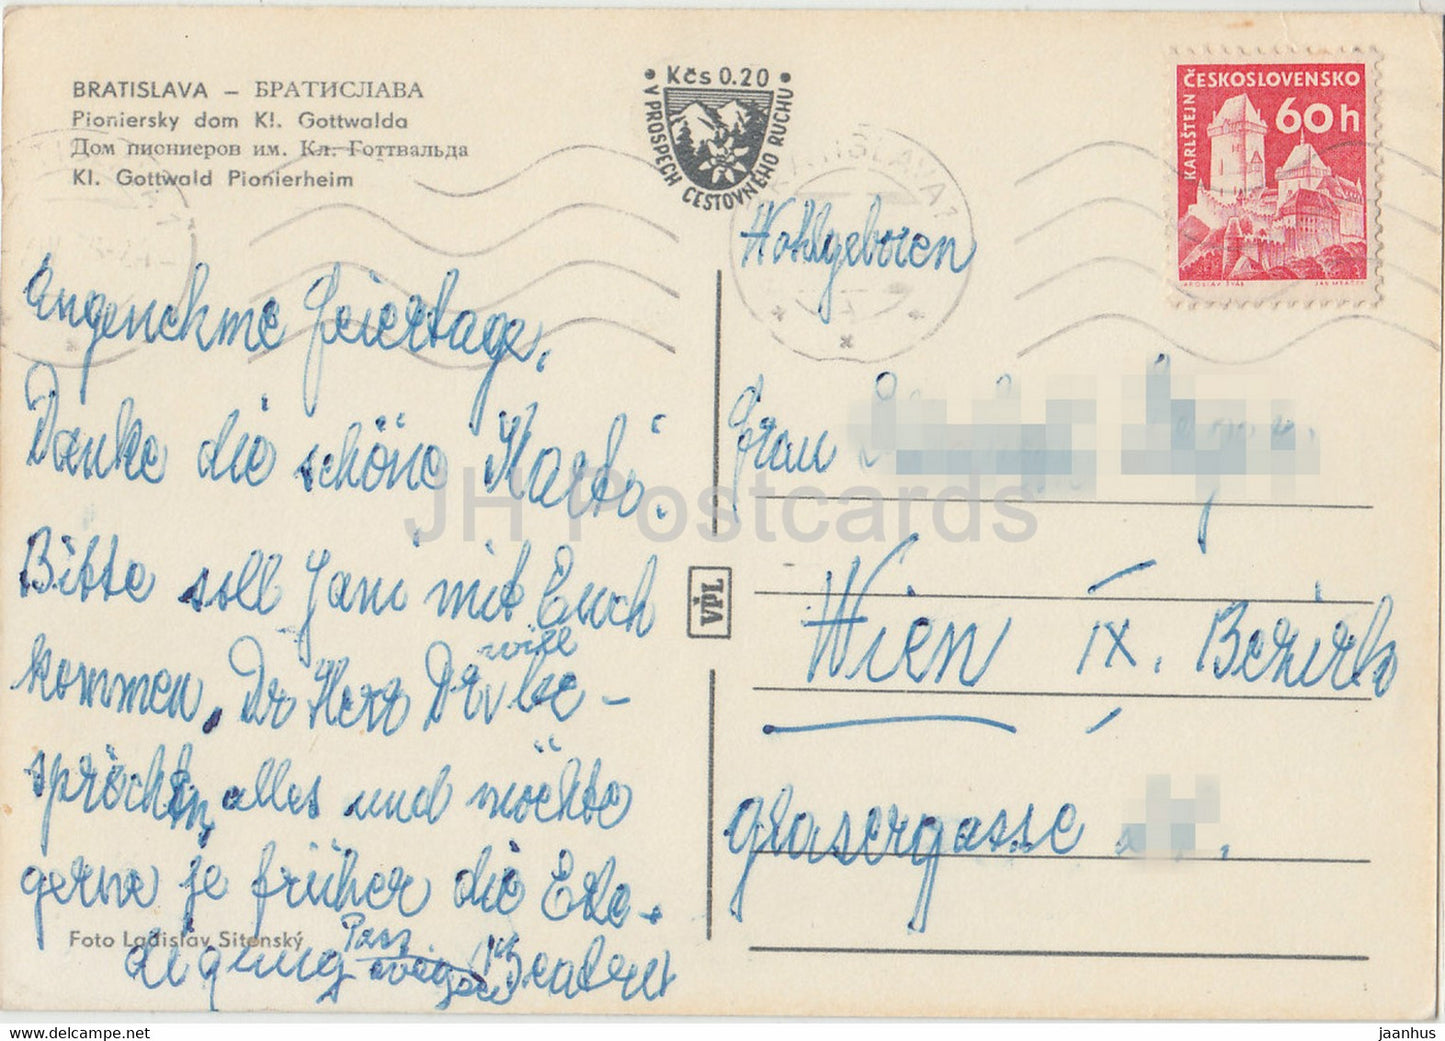 BRATISLAVA – БРАТИСЛАВА
Pioniersky dom Kl. Gottwalda
Дом пионеров им. Кл. Готтвальда
Kl. Gottwald Pionierheim
• Kčs 0.20 •
V PROSPECH CESTOVNÉHO RUCHU
ČESKOSLOVENSKO
60h
KARLŠTEJN
JAROSLAV ŠVÁB
JAN MRÁČEK
BRATISLAVA 1
Angenehme Feiertage.
Danke die schöne Karte.
Bitte soll Jani mit Euch
kommen. Dr Herr Dr will be-
sprechen, alles und möchte
gerne je früher die Erle-
digung Pass
Foto Ladislav Sitenský
VPL
Wohlgeboren
Frau
Wien IX. Bezirk
Glasergasse
JH Postcards
www.delcampe.net
jaanhus